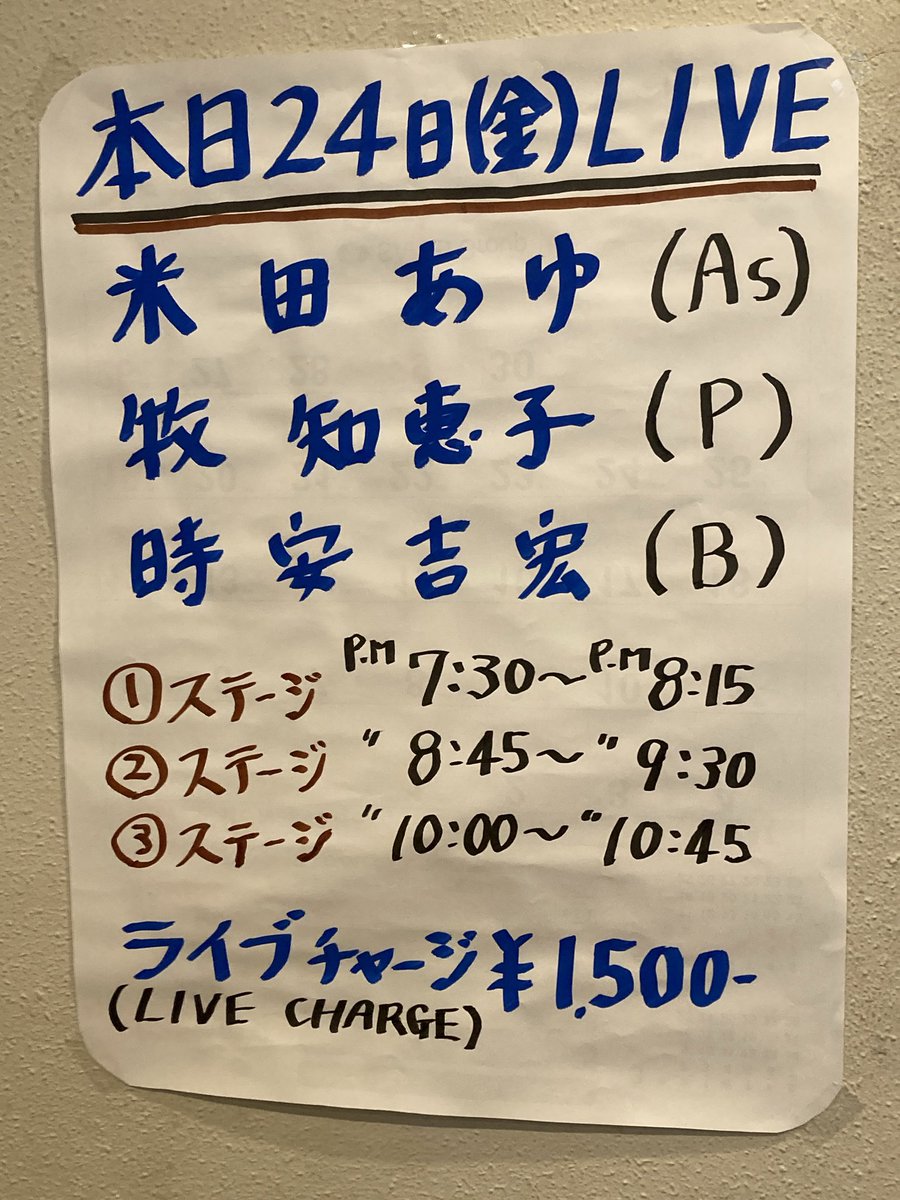 本日24日(金)LIVE
米田あゆ(As)
牧知恵子(P)
時安吉宏(B)
①ステージ P.M 7:30〜P.M 8:15
②ステージ 〃 8:45〜〃 9:30
③ステージ 〃 10:00〜〃 10:45
ライブチャージ¥1,500-
(LIVE CHARGE)